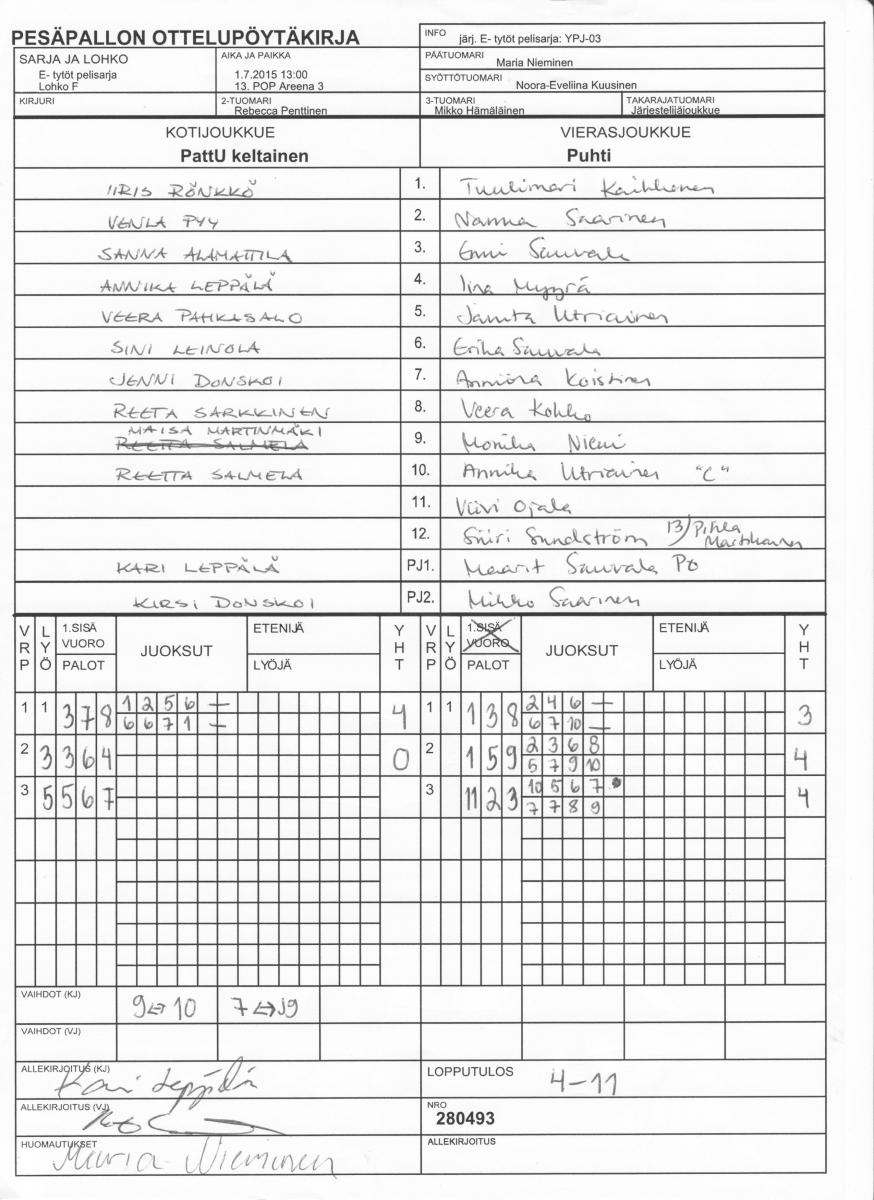 PESÄPALLON OTTELUPÖYTÄKIRJA
INFO järj. E- tytöt pelisarja: YPJ-03
SARJA JA LOHKO
E- tytöt pelisarja
Lohko F
AIKA JA PAIKKA
1.7.2015 13:00
13. POP Areena 3
PÄÄTUOMARI
Maria Nieminen
SYÖTTÖTUOMARI
Noora-Eveliina Kuusinen
KIRJURI
2-TUOMARI
Rebecca Penttinen
3-TUOMARI
Mikko Hämäläinen
TAKARAJATUOMARI
Järjestelijäjoukkue
KOTIJOUKKUE
PattU keltainen
VIERASJOUKKUE
Puhti
IIRIS RÖNKKÖ 1. Tuulimari Kaihlonen
VENLA PYY 2. Nanna Saarinen
SANNA ALAMATTILA 3. Enni Sauvala
ANNIKA LEPPÄLÄ 4. Iina Myyrä
VEERA PAHKASALO 5. Janita Utriainen
SINI LEINOLA 6. Erika Sauvala
JENNI DONSKOI 7. Anniina Koistinen
REETA SARKKINEN 8. Veera Kohko
MAISA MARTINMÄKI
REETTA SALMELA 9. Monika Niemi
REETTA SALMELA 10. Annika Utriainen "C"
11. Viivi Ojala
12. Siiri Sundström 13) Pihla
KARI LEPPÄLÄ PJ1. Maarit Sauvala PO
KIRSI DONSKOI PJ2. Mikko Saarinen
VRP LYÖ 1.SISÄ VUORO PALOT JUOKSUT ETENIJÄ LYÖJÄ YHT VRP LYÖ 1.SISÄ VUORO PALOT JUOKSUT ETENIJÄ LYÖJÄ YHT
1 1 3 7 8 1 2 5 6 – 4 1 1 1 3 8 2 4 6 – 3
6 6 7 1 – 6 7 10 –
2 3 3 6 4 0 2 1 5 9 2 3 6 8 4
5 7 9 10
3 5 5 6 7 3 11 2 3 10 5 6 7 4
7 7 8 9
VAIHDOT (KJ) 9⇔10 7⇔J9
VAIHDOT (VJ)
ALLEKIRJOITUS (KJ) Kari Leppälä
LOPPUTULOS 4-11
ALLEKIRJOITUS (VJ)
NRO
280493
HUOMAUTUKSET Maria Nieminen
ALLEKIRJOITUS